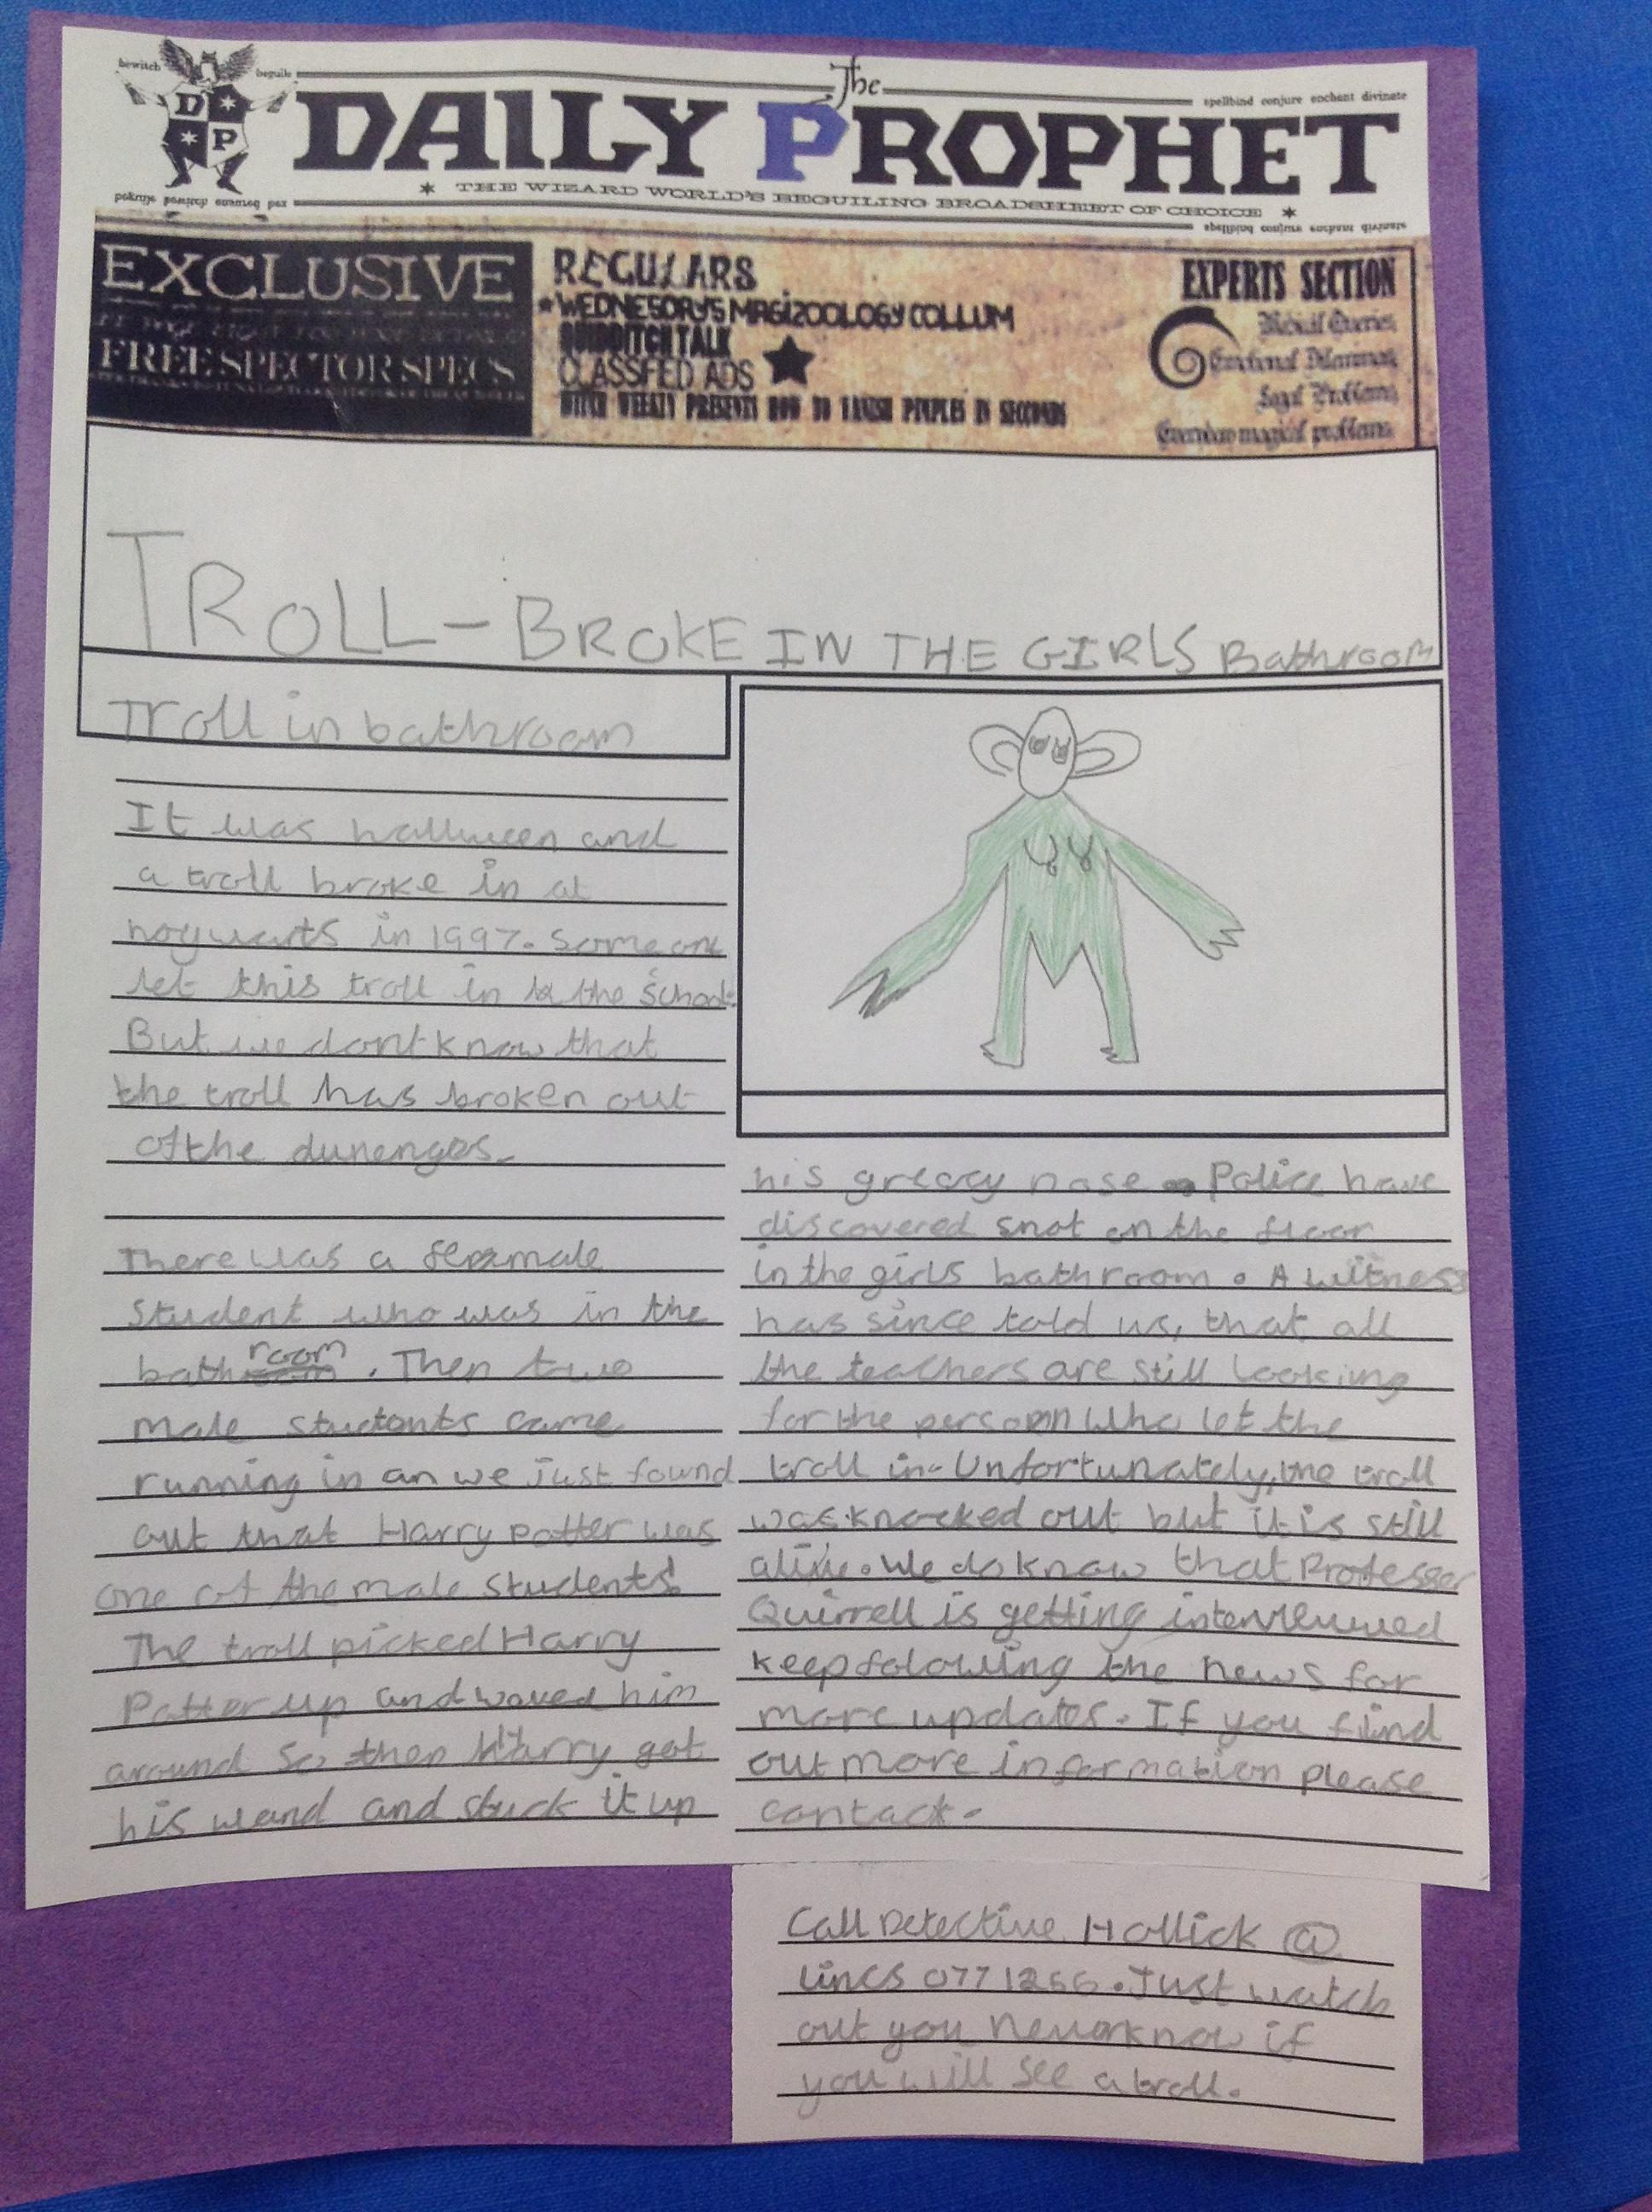 The
bewitch beguile
spellbind conjure enchant divinate
D P
DAILY PROPHET
THE WIZARD WORLD'S BEGUILING BROADSHEET OF CHOICE
EXCLUSIVE
FREE SPECTOR SPECS
REGULARS
WEDNESDAY'S MAGIZOOLOGY COLLUM
QUIDDITCH TALK
CLASSFED ADS
WITCH WEEKLY PRESENTS HOW TO VANISH PIMPLES IN SECONDS
EXPERTS SECTION
Medical Queries
Emotional Dilemmas
Legal Problems
Everyday magical problems
TROLL-BROKE IN THE GIRLS Bathroom
Troll in bathroom
It was halluween and
a troll broke in at
hogwarts in 1997. Some one
let this troll in the school.
But we dont know that
the troll has broken out
of the dunenges.
There was a female
student who was in the
bathroom. Then two
male students came
running in an we just found
out that Harry potter was
one of the male students!
The troll picked Harry
Potter up and waved him
around So then Harry got
his wand and stuck it up
his greacy nose Police have
discovered snot on the floor
in the girls bathroom. A witness
has since told us, that all
the teachers are still looking
for the person who let the
troll in. Unfortunately, the troll
was knocked out but it is still
alive. We do know that Professer
Quirrell is getting interviewed
keep folowing the news for
more updates. If you find
out more information please
contact.
Call Detective Hollick @
Lincs 0771266. Just watch
out you never know if
you will see a troll.